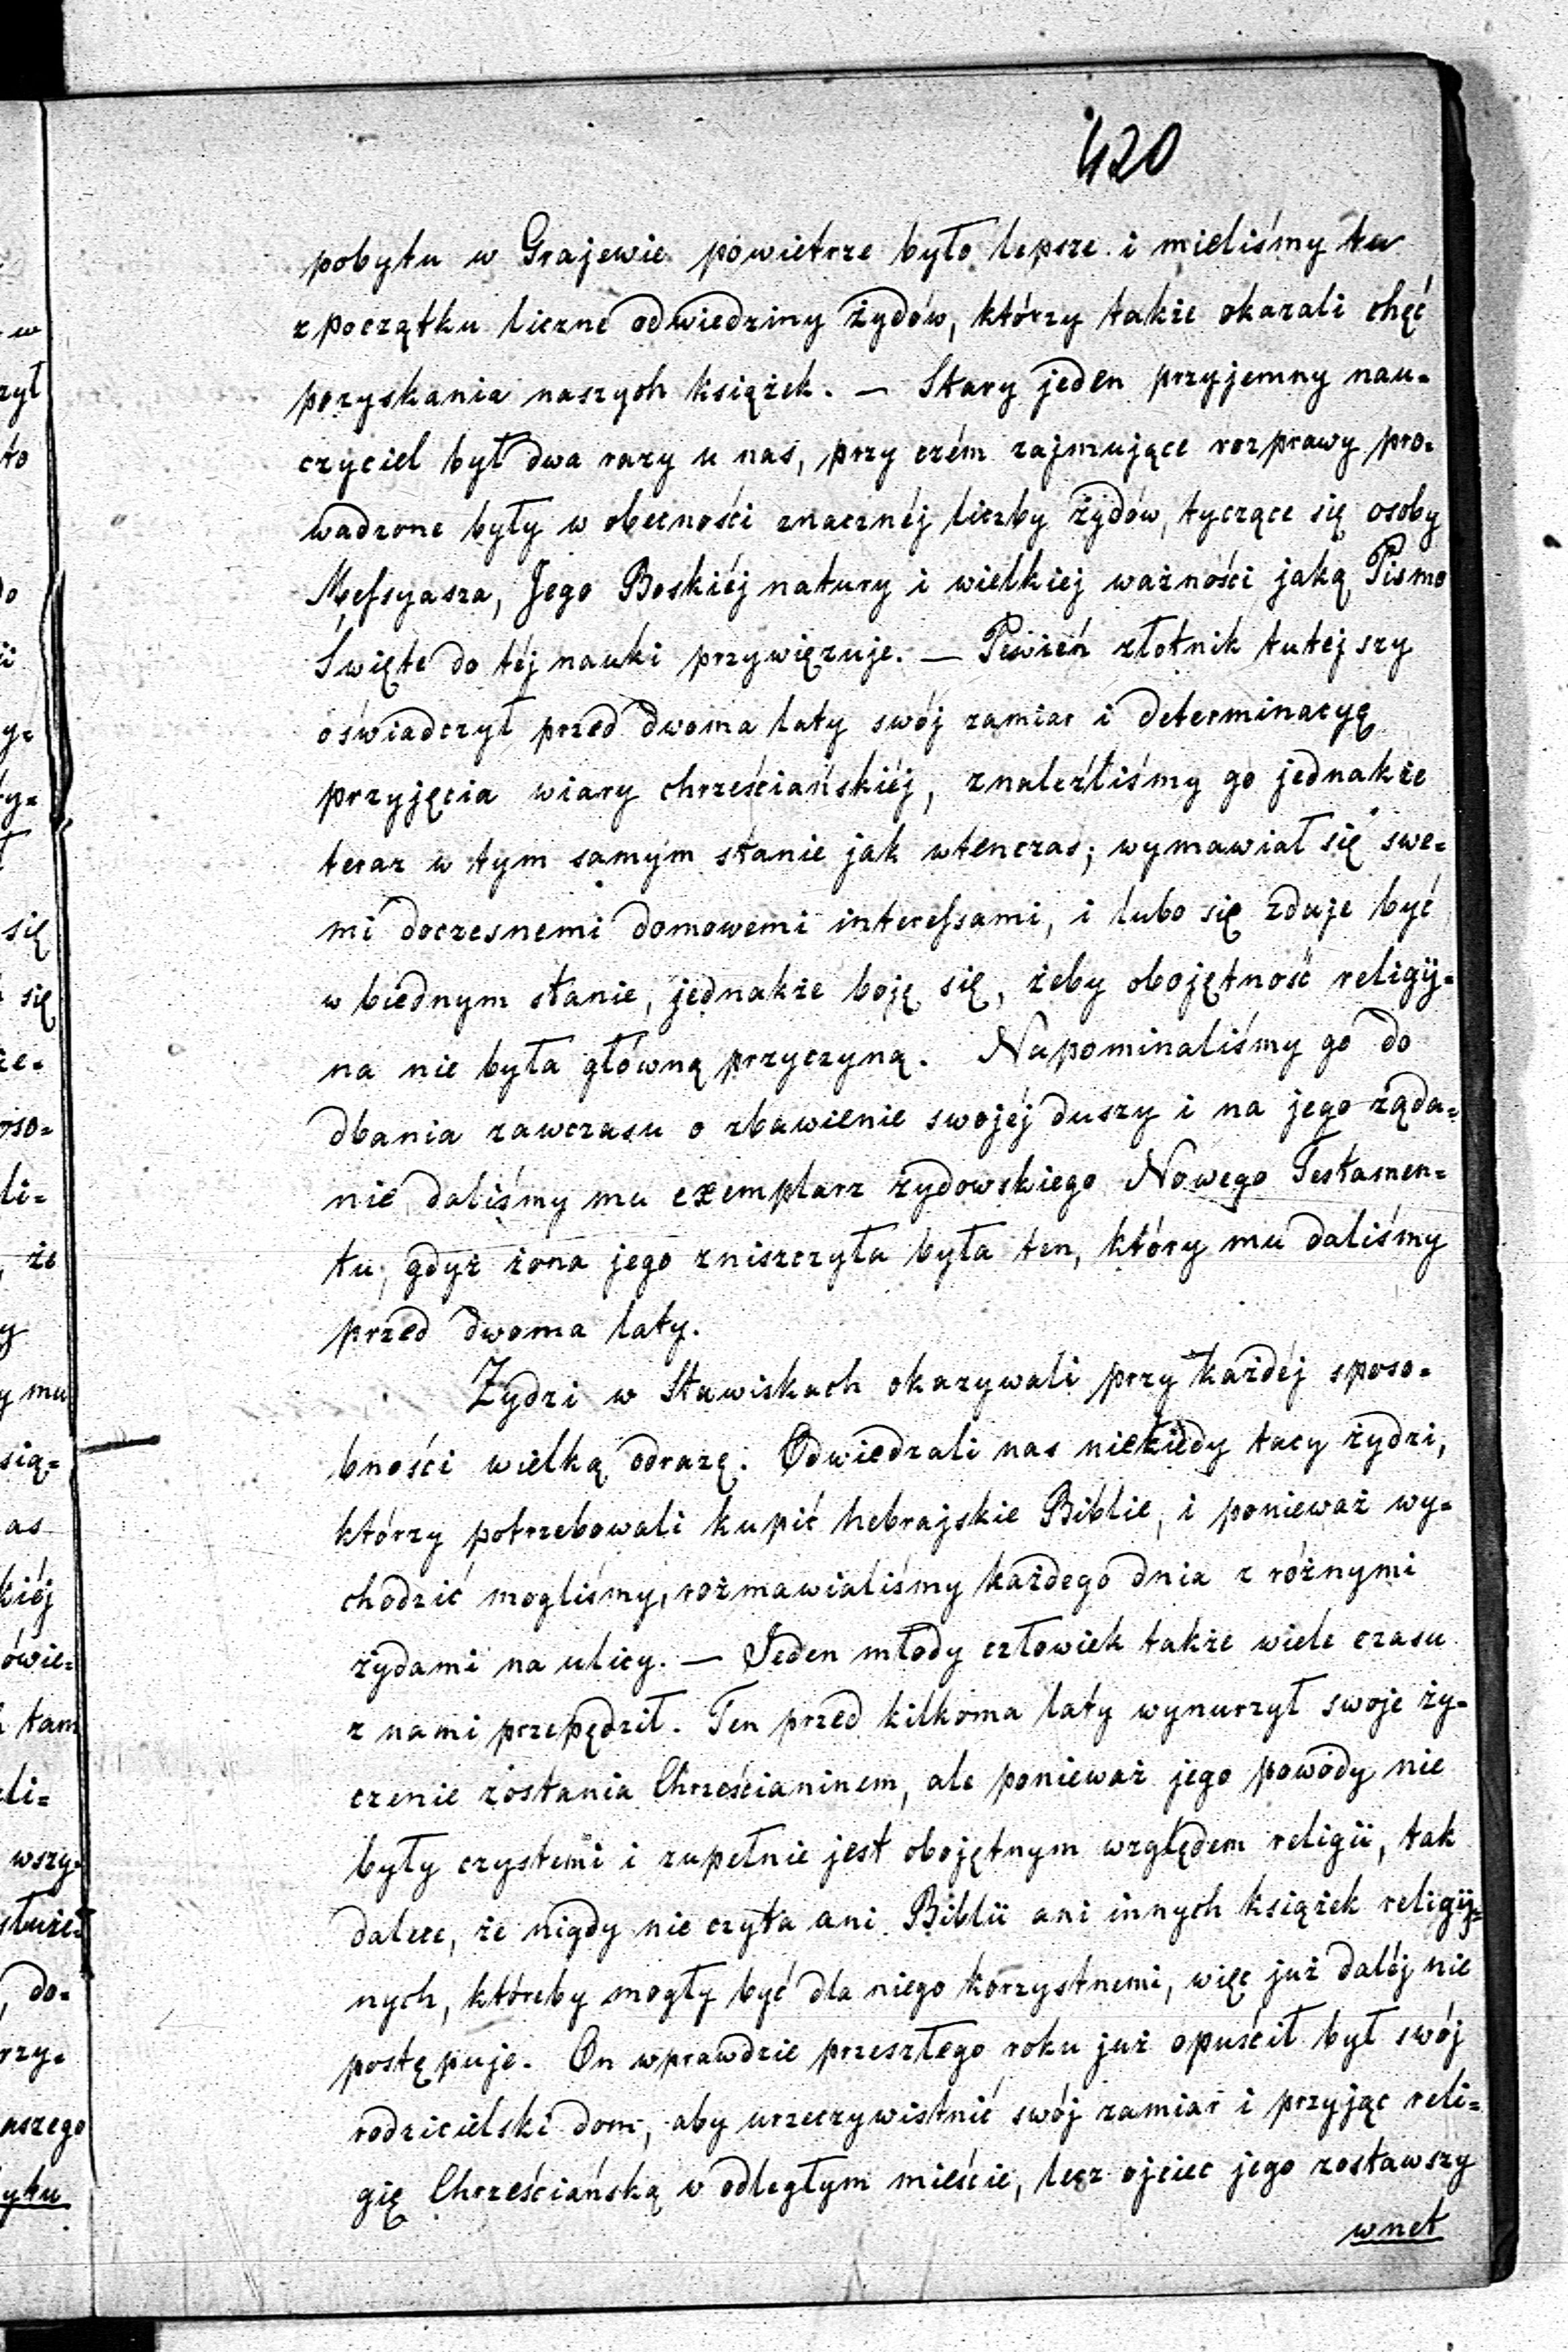 420
pobytu w Grajewie powietrze było lepsze i mieliśmy tu
z początku liczne odwiedziny żydów, którzy także okazali chęć
pozyskania naszych książek. — Stary jeden przyjemny nau-
czyciel był dwa razy u nas, przy czém zajmujące rozprawy pro-
wadzone były w obecności znacznéj liczby żydów, tyczące się osoby
Meſsyasza, Jego Boskiéj natury i wielkiej ważności jaką Pismo
Święte do téj nauki przywięzuje. — Pewień złotnik tutejszy
oświadczył przed dwoma laty swój zamiar i determinacyę
przyjęcia wiary chrześciańskiéj, znaleźliśmy go jednakże
teraz w tym samym stanie jak wtenczas; wymawiał się swe-
mi doczesnemi domowemi intereſsami, i lubo się zdaje być
w biednym stanie, jednakże boję się, żeby obojętność religij-
na nie była główną przyczyną. Napominaliśmy go do
dbania zawczasu o zbawienie swojéj duszy i na jego żąda-
nie daliśmy mu exemplarz żydowskiego Nowego Testamen-
tu, gdyż żona jego zniszczyła była ten, który mu daliśmy
przed dwoma laty.
Żydzi w Stawiskach okazywali przy każdéj sposo-
bności wielką odrazę. Odwiedzali nas niekiedy tacy żydzi,
którzy potrzebowali kupić hebrajskie Biblie, i ponieważ wy-
chodzić mogliśmy, rozmawialiśmy każdego dnia z różnymi
żydami na ulicy. — Jeden młody człowiek także wiele czasu
z nami przepędził. Ten przed kilkoma laty wynurzył swoje ży-
czenie zostania Chrześcianinem, ale ponieważ jego powody nie
były czystemi i zupełnie jest obojętnym względem religii, tak
dalece, że nigdy nie czyta ani Biblii ani innych książek religij-
nych, któreby mogły być dla niego korzystnemi, więc już daléj nie
postępuje. On wprawdzie przeszłego roku już opuścił był swój
rodzicielski dom, aby urzeczywistnić swój zamiar i przyjąc reli-
gię Chrześciańską w odległym mieście, lecz ojciec jego zostawszy
wnet